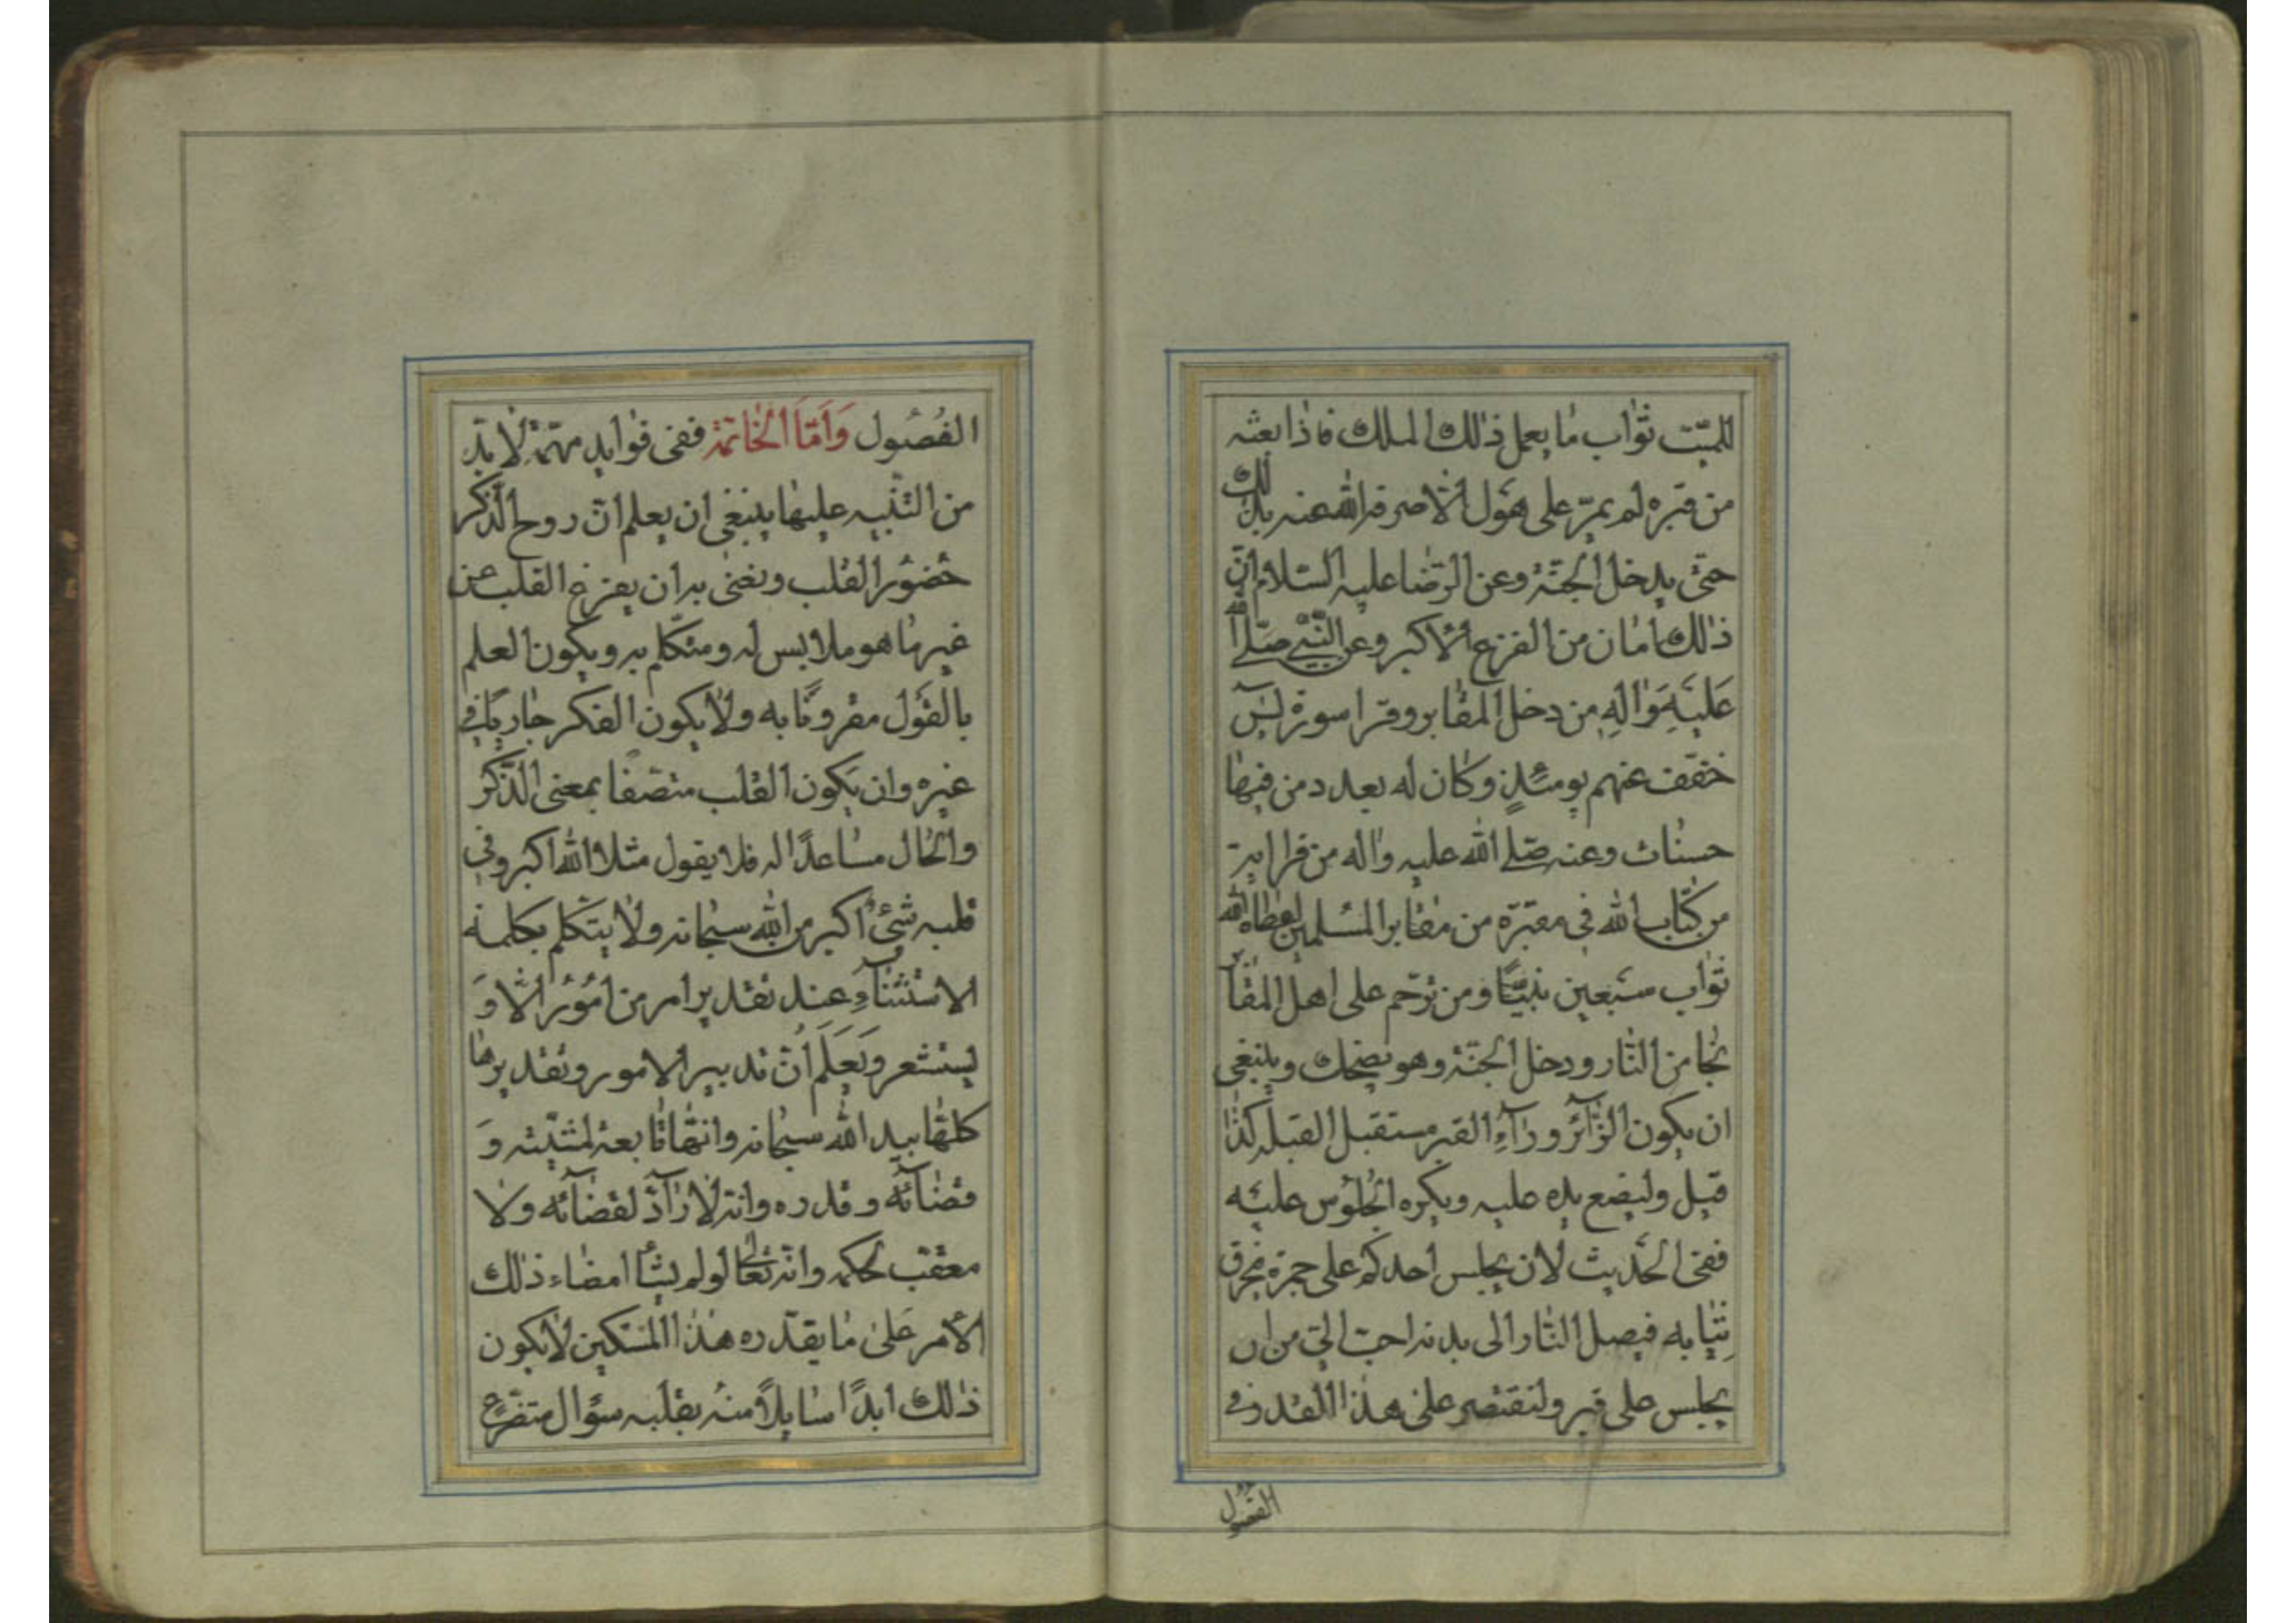 للميّت ثواب ما يعمل ذلك الملك فاذا بعثه
من قبره لم يمرّ على هول الا صرفه الله عنه بذلك
حتى يدخل الجنّة وعن الرّضا عليه السّلام انّ
ذلك امان من الفزع الاكبر وعن النّبي صلّى الله
عَليهِ وَالِهِ من دخل المقابر وقرا سورة يس
خفّف عنهم يومئذٍ وكان له بعدد من فيها
حسنات وعنه صلّى الله عليه واله من قرا اية
من كتاب الله في مقبرة من مقابر المسلمين اعطاه الله
ثواب سبعين نبيّاً ومن ترحّم على اهل المقابر
نجا من النّار ودخل الجنّة وهو يضحك وينبغي
ان يكون الزّائر ورآءِ القبر مستقبل القبلة كذا
قيل وليضع يده عليه ويكره الجلوس عليه
ففى الحديث لان يجلس احدكم على جمرة فيحرق
ثيابه فيصل النّار الى بدنه احبّ اليّ من ان
يجلس على قبر ولنقتصر على هذا القدر فى
الفصول
الفُصُول وَاَمّا الخاتمة ففى فوايد مهمّة لا بدّ
من التّنبيه عليها ينبغي ان يعلم انّ روح الذّكر
حضور القلب ونعنى به ان يفرغ القلب عن
غير ما هو ملابس له ومتكلّم به ويكون العلم
بالقول مقرونًا به ولا يكون الفكر جاريًا في
غيره وان يكون القلب متّصفًا بمعنى الذّكر
والحال مساعدًا له فلا يقول مثلا الله اكبر وفي
قلبه شىء اكبر من الله سبحانه ولا يتكلم بكلمة
الاستثنآءِ عند تقدير امر من امور الا وَ
يستشعر ويَعلَم انّ تدبير الامور وتقديرها
كلها بيد الله سبحانه وانها تابعة لمشيّته وَ
قضآئه وقدره وانه لا رآدّ لقضآئه ولا
معقّب لحكمه وانّه تعالى لو لم يشأ امضاء ذلك
الأمر على ما يقدّره هذا المسكين لا يكون
ذلك ابدًا سايلاً منه بقلبه سؤال متضرّع